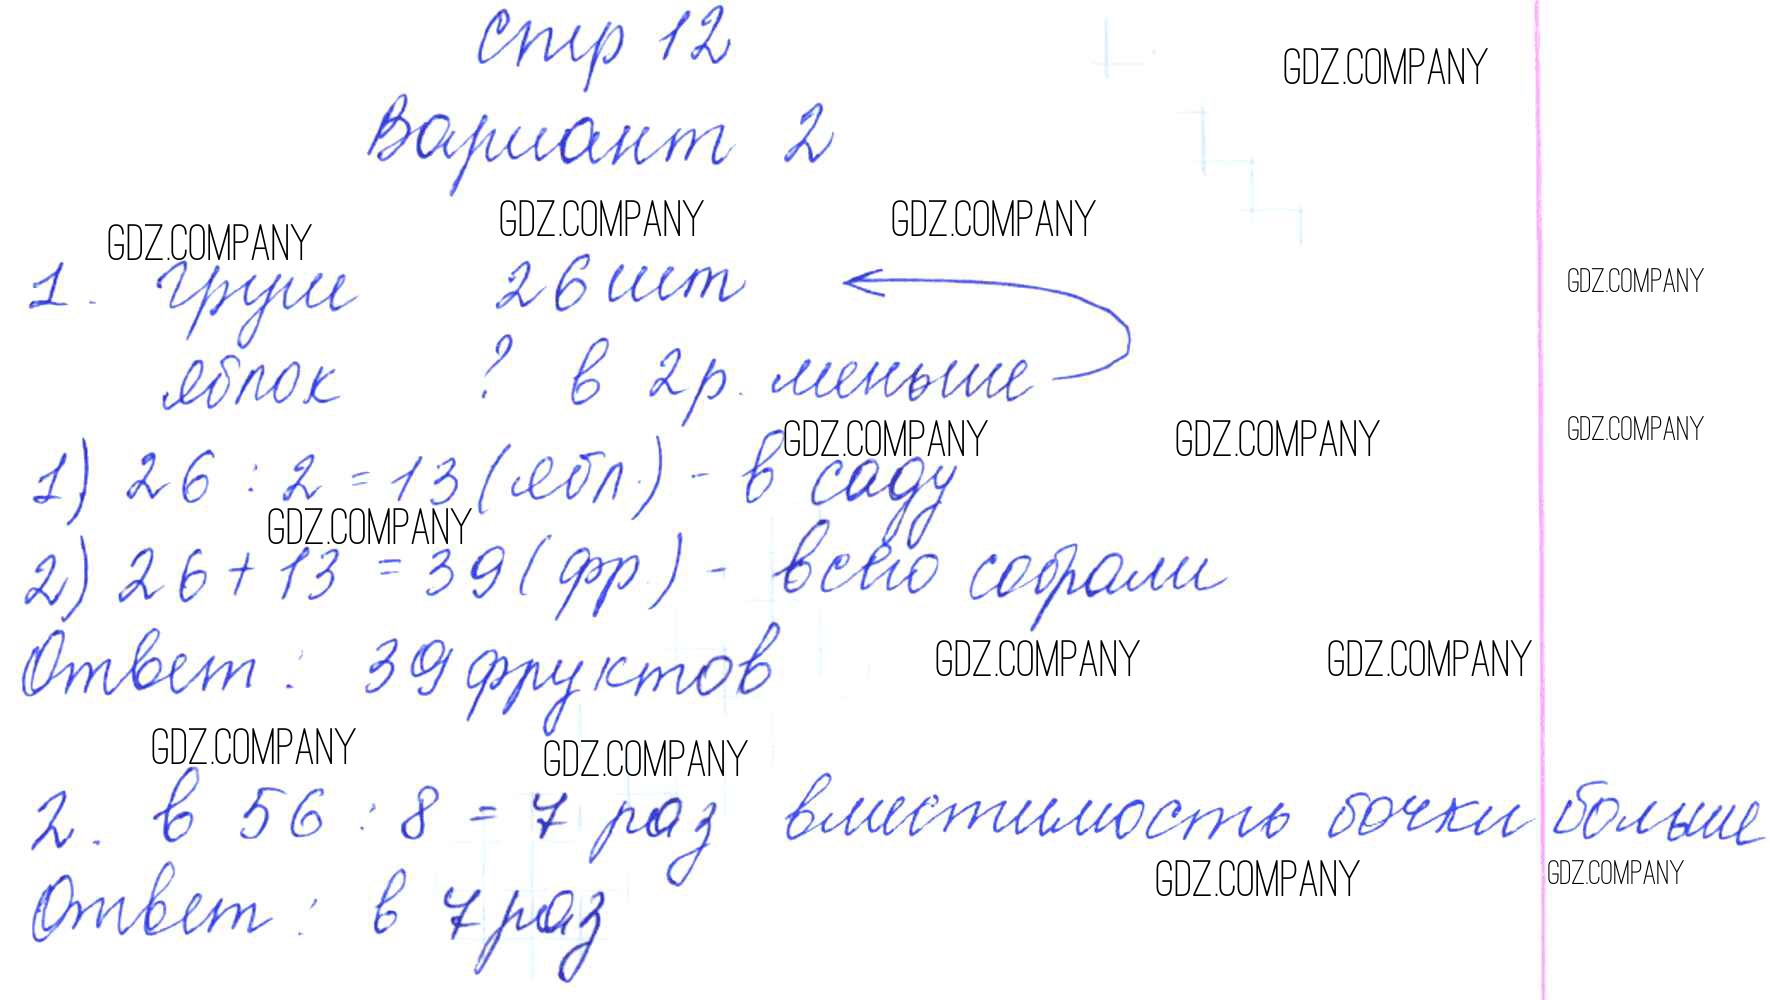 Стр 12
GDZ.COMPANY
Вариант 2
GDZ.COMPANY GDZ.COMPANY GDZ.COMPANY
1. груш 26 шт
GDZ.COMPANY
яблок ? в 2 р. меньше
GDZ.COMPANY GDZ.COMPANY GDZ.COMPANY
1) 26 : 2 = 13 (ябл.) - в саду
GDZ.COMPANY
2) 26 + 13 = 39 (фр.) - всего собрали
Ответ : 39 фруктов
GDZ.COMPANY GDZ.COMPANY
GDZ.COMPANY GDZ.COMPANY
2. в 56 : 8 = 7 раз вместимость бочки больше
GDZ.COMPANY GDZ.COMPANY
Ответ : в 7 раз